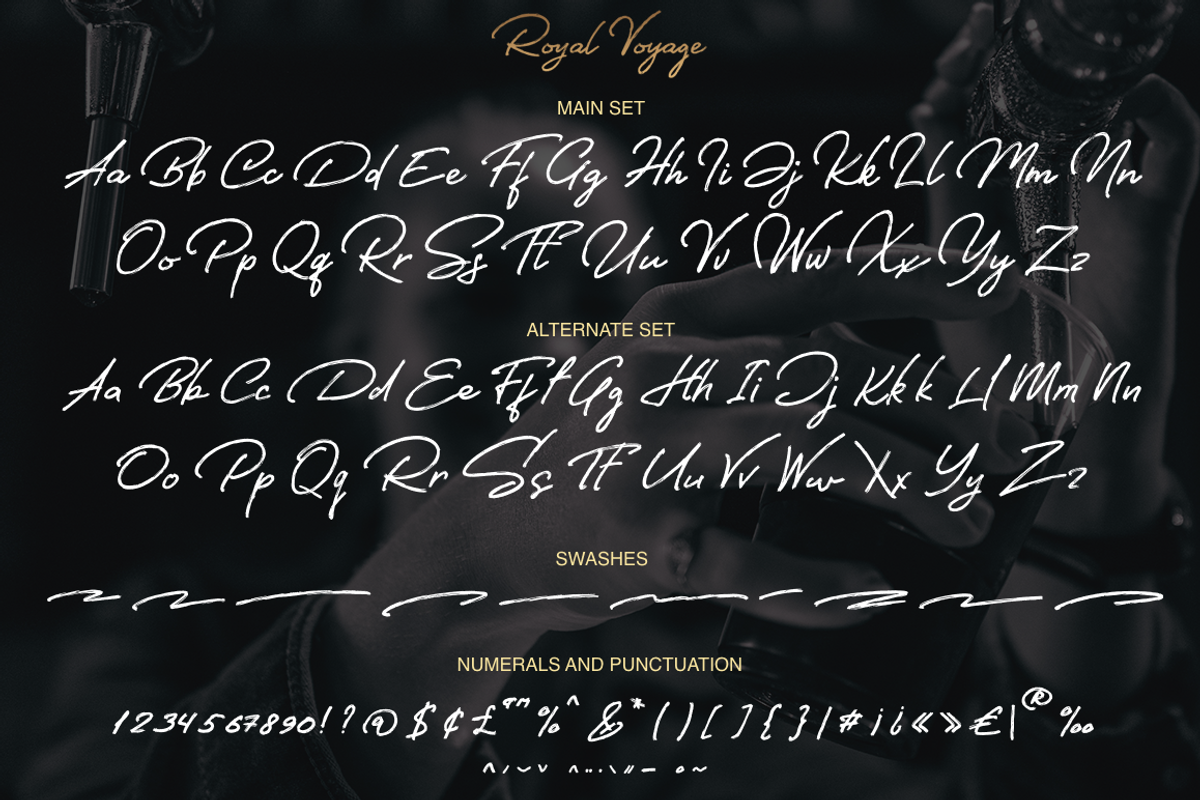 Royal Voyage
MAIN SET
Aa Bb Cc Dd Ee Ff Gg Hh Ii Jj Kk Ll Mm Nn
Oo Pp Qq Rr Ss Tt Uu Vv Ww Xx Yy Zz
ALTERNATE SET
Aa Bb Cc Dd Ee Fff Gg Hh Ii Jj Kkk Ll Mm Nn
Oo Pp Qq Rr Ss Tt Uu Vv Ww Xx Yy Zz
SWASHES
NUMERALS AND PUNCTUATION
1234567890!?@$¢£™%^&*()[]{}/#¡¿«»€|®‰